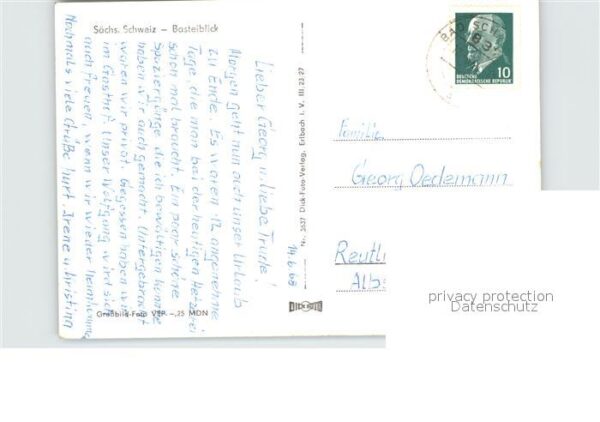 Sächs. Schweiz — Basteiblick
Lieber Georg u. liebe Trude!
Morgen geht nun auch unser Urlaub
zu Ende. Es waren 12 angenehme
Tage, die man bei der heutigen Hetzerei
schon mal braucht. Ein paar schöne
Spaziergänge die ich bewältigen konnte
haben wir auch gemacht. Untergebracht
waren wir privat. Gegessen haben wir
im Gasthof. Unser Wolfgang wird sich
auch freuen, wenn wir wieder heimkommen
Nochmals viele Grüße Kurt, Irene u. Christina
Großbild-Foto VEP —,25 MDN
Nr. 3637 Dick-Foto-Verlag, Erlbach i. V. III 23 27
14.6.68
DICK FOTO
BAD SCH
10
DEUTSCHE
DEMOKRATISCHE REPUBLIK
Familie
Georg Oedemann
Reutl
Alb
privacy protection
Datenschutz